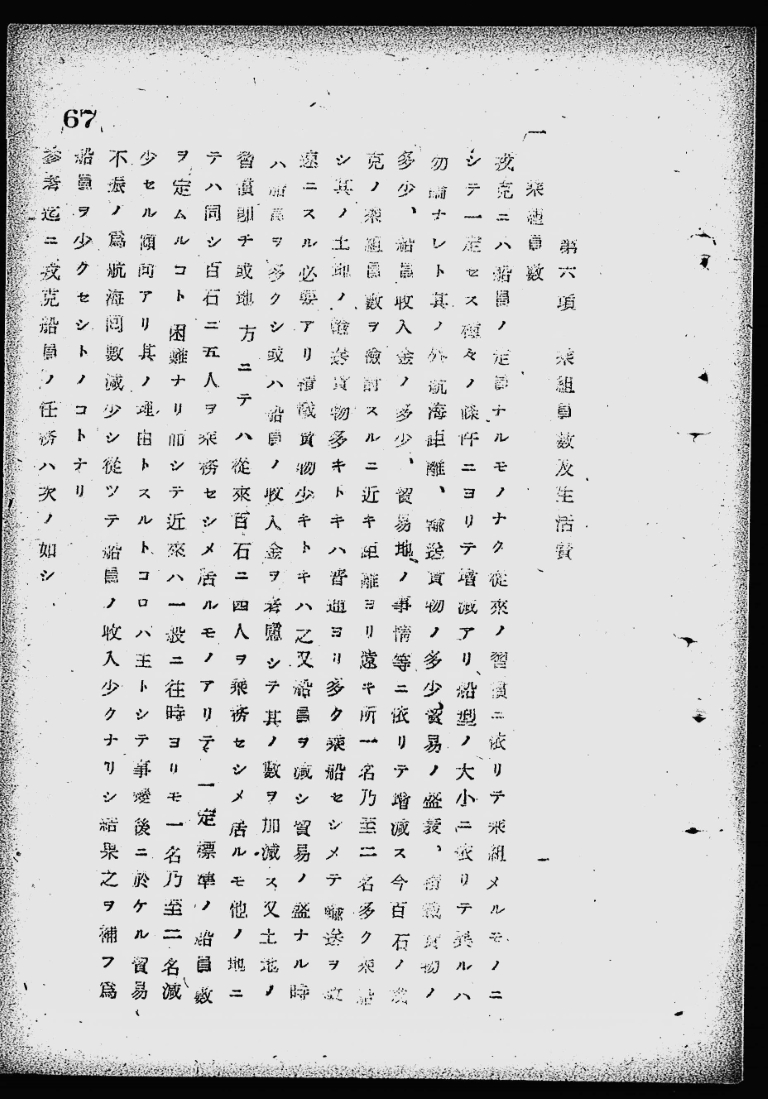 67
第六項 乘組員數及生活費
一 乘組員數
戎克ニハ船員ノ定員ナルモノナク從來ノ習慣ニ依リテ乘組メルモノニ
シテ一定セス種々ノ條件ニヨリテ增減アリ船型ノ大小ニ依リテ異ルハ
勿論ナレト其ノ外航海距離、輸送貨物ノ多少貿易ノ盛衰、積載貨物ノ
多少、船員收入金ノ多少、貿易地ノ事情等ニ依リテ增減ス今百石ノ戎
克ノ乘組員數ヲ檢討スルニ近キ距離ヨリ遠キ所一名乃至二名多ク乘船
シ其ノ土地ノ輸送貨物多キトキハ普通ヨリ多ク乘船セシメテ輸送ヲ
遠ニスル必要アリ積載貨物少キトキハ之又船員ヲ減シ貿易ノ盛ナル時
ハ船員ヲ多クシ或ハ船員ノ收入金ヲ考慮シテ其ノ數ヲ加減ス又土地ノ
習慣卽チ或地方ニテハ從來百石ニ四人ヲ乘務セシメ居ルモ他ノ地ニ
テハ同シ百石ニ五人ヲ乘務セシメ居ルモノアリテ一定標準ノ船員數
ヲ定ムルコト困難ナリ而シテ近來ハ一般ニ往時ヨリモ一名乃至二名減
少セル傾向アリ其ノ理由トスルトコロハ主トシテ事變後ニ於ケル貿易
不振ノ爲航海囘數減少シ從ツテ船員ノ收入少クナリシ結果之ヲ補フ爲
船員ヲ少クセシトノコトナリ
參考迄ニ戎克船員ノ任務ハ次ノ如シ